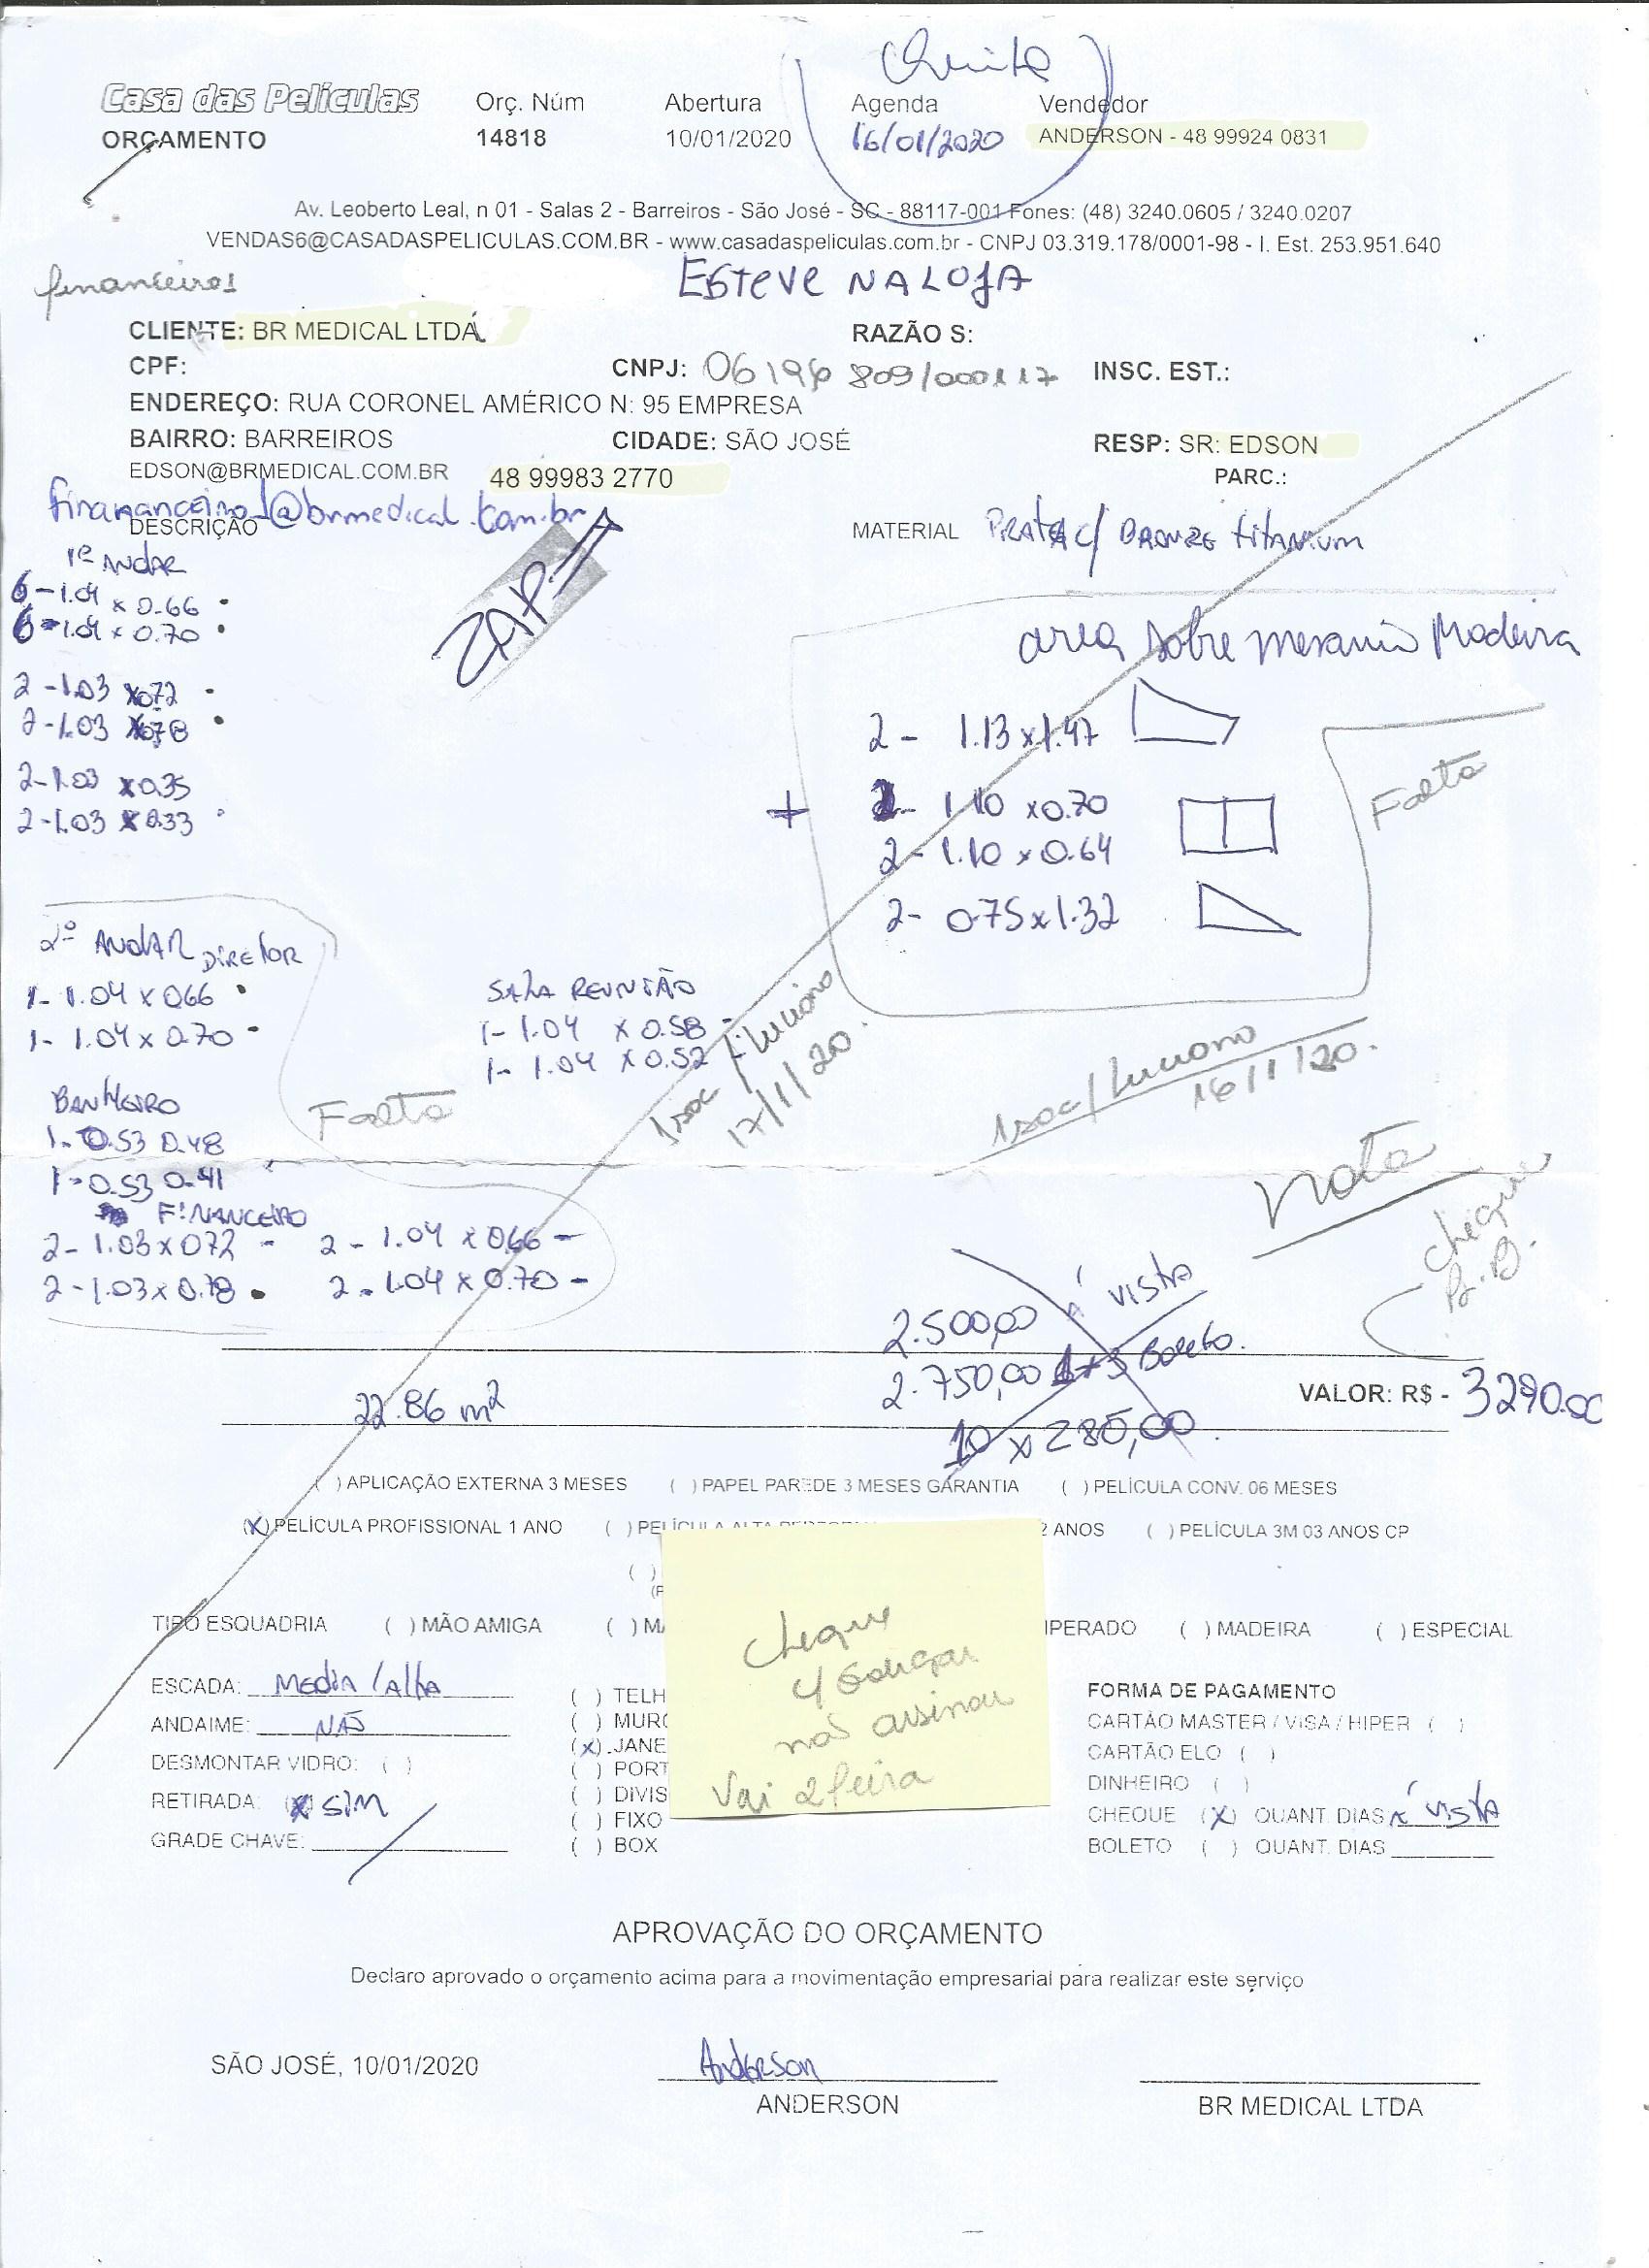 Quita
Casa das Películas Orç. Núm Abertura Agenda Vendedor
ORÇAMENTO 14818 10/01/2020 16/01/2020 ANDERSON - 48 99924 0831
Av. Leoberto Leal, n 01 - Salas 2 - Barreiros - São José - SC - 88117-001 Fones: (48) 3240.0605 / 3240.0207
VENDAS6@CASADASPELICULAS.COM.BR - www.casadaspeliculas.com.br - CNPJ 03.319.178/0001-98 - I. Est. 253.951.640
financeiro1 ESTEVE NA LOJA
CLIENTE: BR MEDICAL LTDA RAZÃO S:
CPF: CNPJ: 06 196 809/0001 17 INSC. EST.:
ENDEREÇO: RUA CORONEL AMÉRICO N: 95 EMPRESA
BAIRRO: BARREIROS CIDADE: SÃO JOSÉ RESP: SR: EDSON
EDSON@BRMEDICAL.COM.BR 48 99983 2770 PARC.:
finananceiro1@brmedical.com.br
DESCRIÇÃO MATERIAL PRATA C/ BRONZE titanium
1º ANDAR
6 - 1.04 x 0.66
6 - 1.04 x 0.70
ZAP
2 - 1.03 x 072
2 - 1.03 x 078
2 - 1.03 x 0.35
2 - 1.03 x 0.33
area sobre mesanio Madeira
2 - 1.13 x 1.47
+ 2 - 1.10 x 0.70
2 - 1.10 x 0.64
2 - 0.75 x 1.32
Falta
2º ANDAR DIRETOR
1 - 1.04 x 066
1 - 1.04 x 0.70
SALA REUNIÃO
1 - 1.04 x 0.58
1 - 1.04 x 0.52
Isac / Luciano
17/1/20.
Isac / Luciano
16/1/20.
BANHEIRO
1 - 0.53 0.48
1 - 0.53 0.41
Falta
FINANCEIRO
2 - 1.03 x 072 2 - 1.04 x 066
2 - 1.03 x 0.78 2 - 1.04 x 0.70
Nota
cheque
P. B.
2.500,00 á vista
2.750,00 1+3 Boleto.
22.86 m² VALOR: R$ - 3290.00
10 x 285,00
( ) APLICAÇÃO EXTERNA 3 MESES ( ) PAPEL PAREDE 3 MESES GARANTIA ( ) PELÍCULA CONV. 06 MESES
(X) PELÍCULA PROFISSIONAL 1 ANO ( ) PELÍCULA ALTA 2 ANOS ( ) PELÍCULA 3M 03 ANOS CP
( )
(P
TIPO ESQUADRIA ( ) MÃO AMIGA ( ) MA IPERADO ( ) MADEIRA ( ) ESPECIAL
cheque
não assinou
Vai 2 feira
ESCADA: Media / alta ( ) TELH FORMA DE PAGAMENTO
ANDAIME: NÃO ( ) MURO CARTÃO MASTER / VISA / HIPER ( )
(X) JANE CARTÃO ELO ( )
DESMONTAR VIDRO: ( ) ( ) PORT DINHEIRO ( )
RETIRADA: (X) SIM ( ) DIVIS CHEQUE (X) QUANT. DIAS á vista
GRADE CHAVE: ( ) FIXO BOLETO ( ) QUANT. DIAS
( ) BOX
APROVAÇÃO DO ORÇAMENTO
Declaro aprovado o orçamento acima para a movimentação empresarial para realizar este serviço
SÃO JOSÉ, 10/01/2020 Anderson
ANDERSON BR MEDICAL LTDA